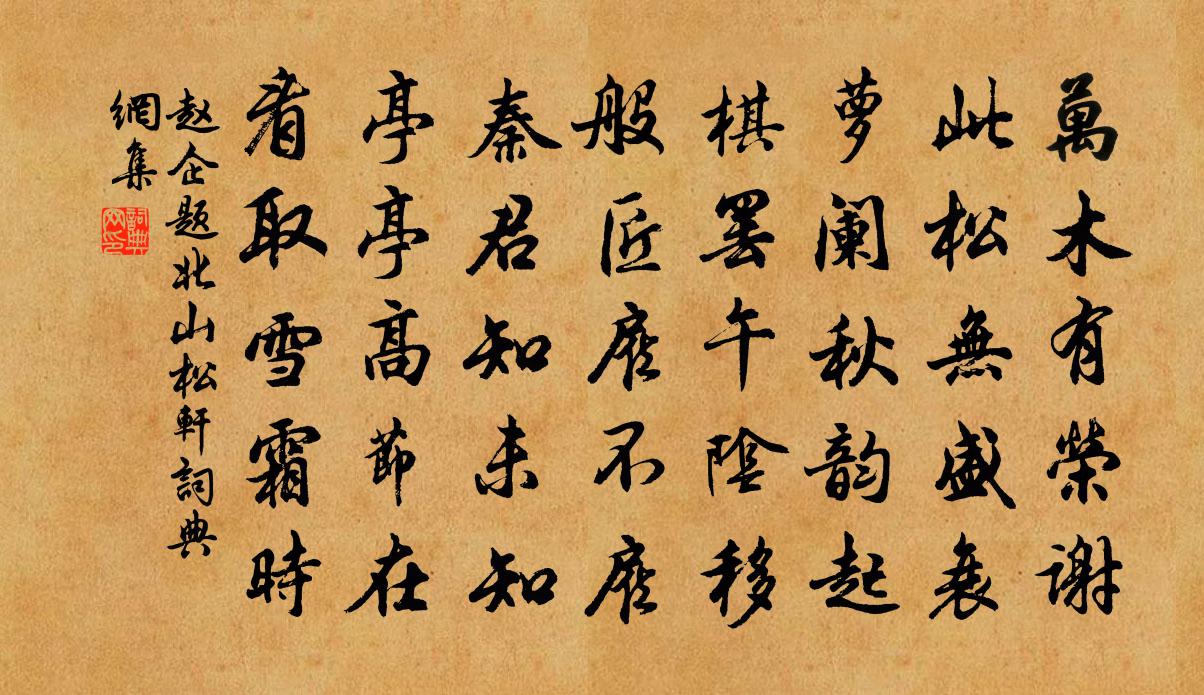 萬木有榮謝
此松無盛衰
夢阑秋韵起
棋罢午陰移
般匠顾不顾
秦君知未知
亭亭高節在
看取雪霜時
赵企题北山松軒詞典
網集
詞典
网印